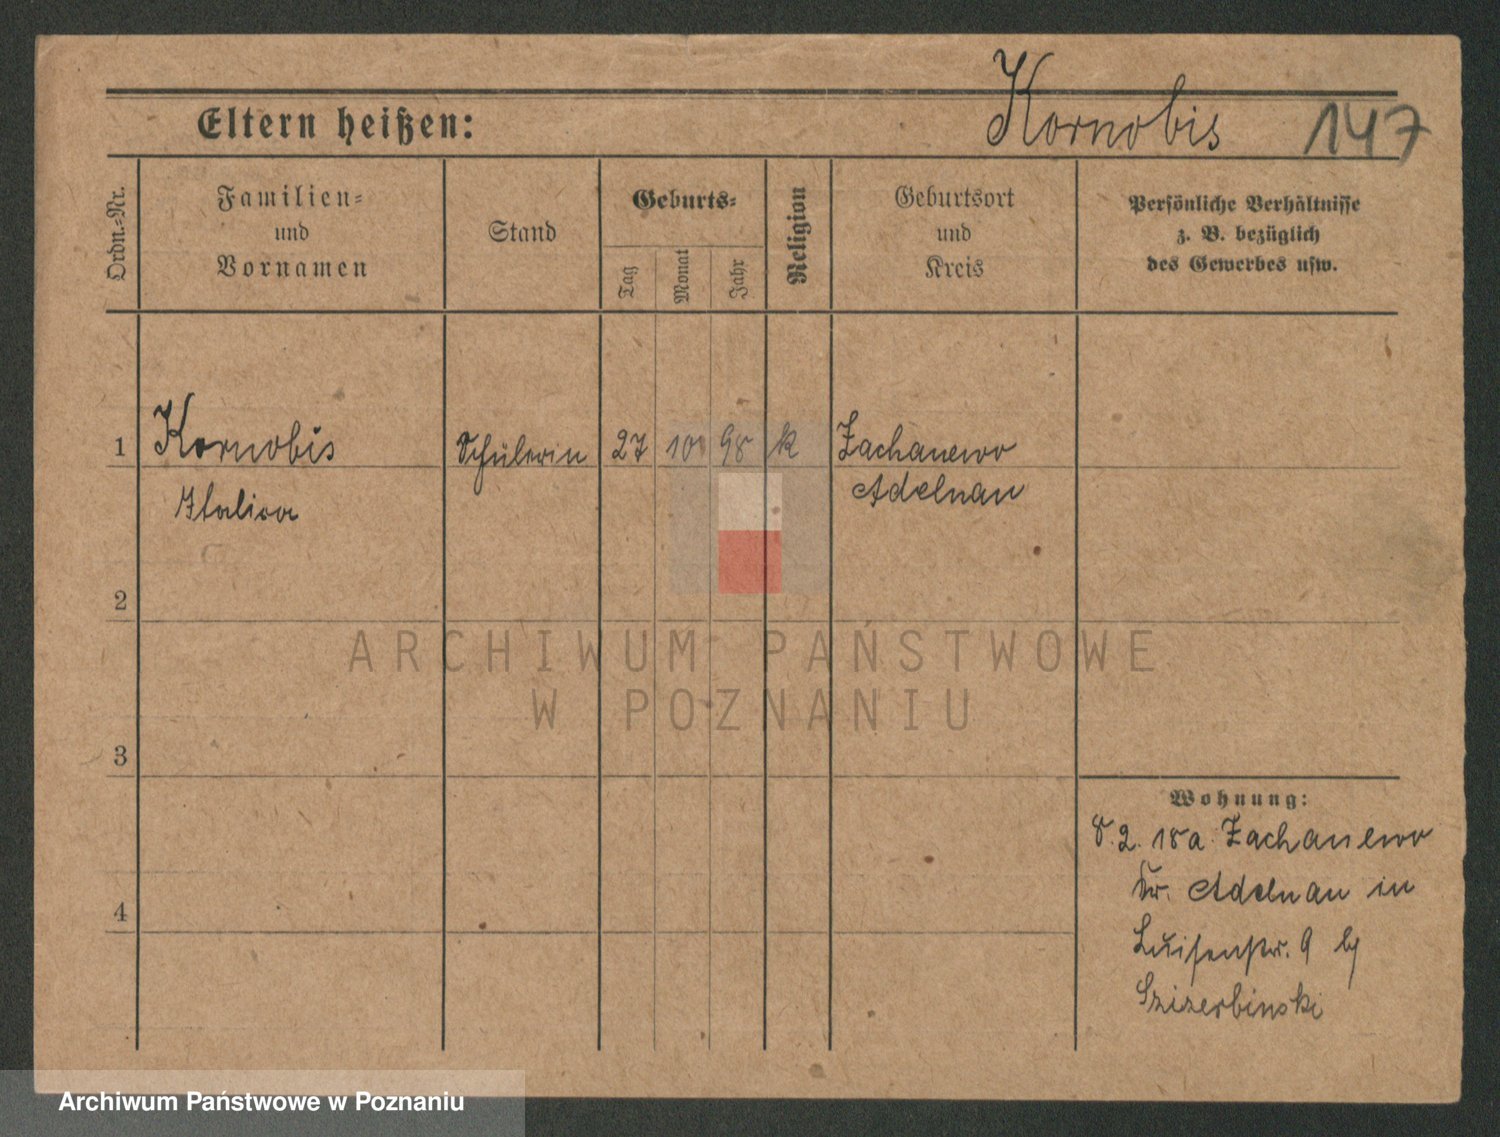 Kornobis 147
Eltern heißen:
Ordn.=Nr.
Familien=
und
Vornamen
Stand
Geburts=
Tag
Monat
Jahr
Religion
Geburtsort
und
Kreis
Persönliche Verhältnisse
z. B. bezüglich
des Gewerbes usw.
1 Kornobis Schülerin 27 10 98 k Zacharzewo
Adelnau
2
3
4
Wohnung:
8.2. 18 a. Zacharzewo
Kr. Adelnau in
Luisenstr. 9 bj
ARCHIWUM PAŃSTWOWE
W POZNANIU
Archiwum Państwowe w Poznaniu